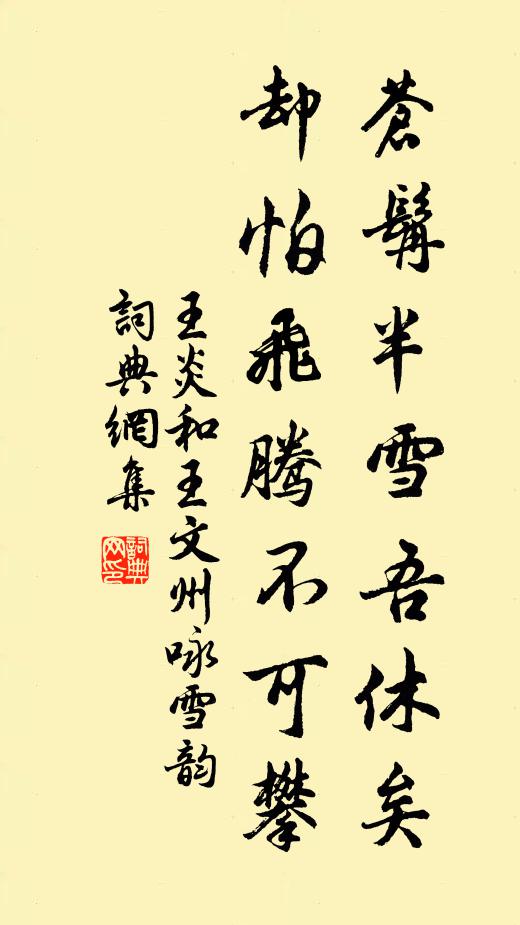 蒼鬢半雪吾休矣
却怕飛騰不可攀
王炎和王文州咏雪韵
詞典網集
詞典網印